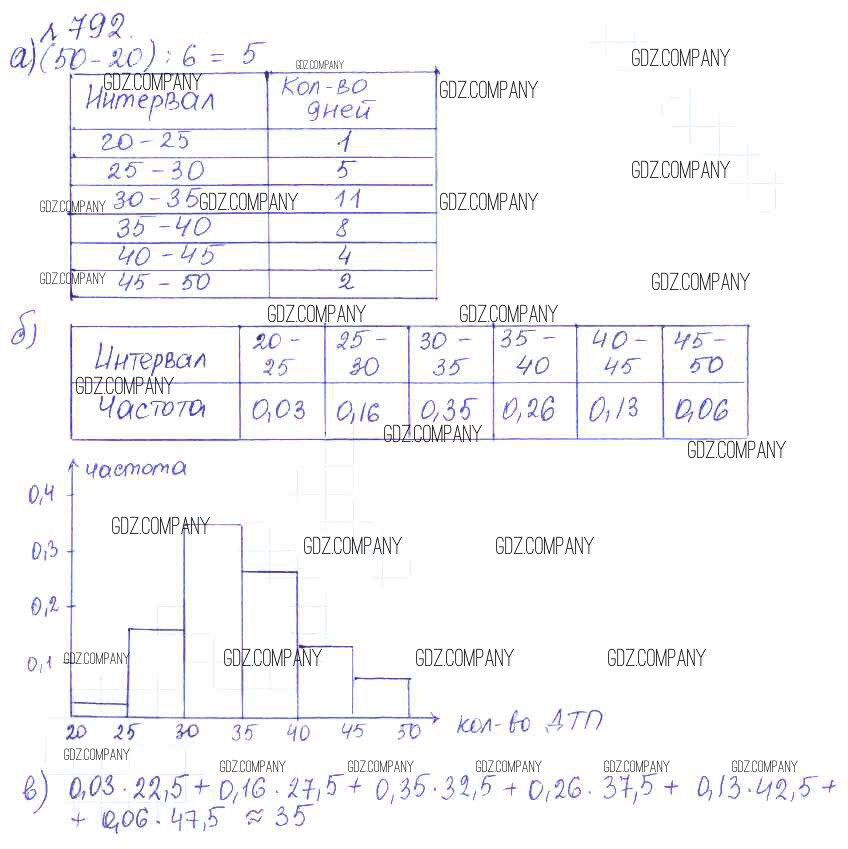 № 792.
а) (50 - 20) : 6 = 5
GDZ.COMPANY
GDZ.COMPANY
GDZ.COMPANY
GDZ.COMPANY
Интервал Кол-во дней
20 - 25 1
25 - 30 5
GDZ.COMPANY
30 - 35 11
GDZ.COMPANY GDZ.COMPANY GDZ.COMPANY
35 - 40 8
40 - 45 4
45 - 50 2
GDZ.COMPANY GDZ.COMPANY
GDZ.COMPANY GDZ.COMPANY
б)
Интервал 20 - 25 25 - 30 30 - 35 35 - 40 40 - 45 45 - 50
GDZ.COMPANY
Частота 0,03 0,16 0,35 0,26 0,13 0,06
GDZ.COMPANY
GDZ.COMPANY
частота
0,4
GDZ.COMPANY
0,3 GDZ.COMPANY GDZ.COMPANY
0,2
0,1 GDZ.COMPANY GDZ.COMPANY GDZ.COMPANY GDZ.COMPANY
20 25 30 35 40 45 50 кол-во ДТП
GDZ.COMPANY
GDZ.COMPANY GDZ.COMPANY GDZ.COMPANY GDZ.COMPANY GDZ.COMPANY
в) 0,03 · 22,5 + 0,16 · 27,5 + 0,35 · 32,5 + 0,26 · 37,5 + 0,13 · 42,5 +
+ 0,06 · 47,5 ≈ 35